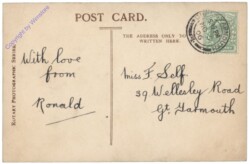 POST CARD.
THE ADDRESS ONLY TO BE
WRITTEN HERE.
ROTARY PHOTOGRAPHIC SERIES.
With love
from
Ronald
Miss F. Self
39 Wellesley Road
Gt. Yarmouth